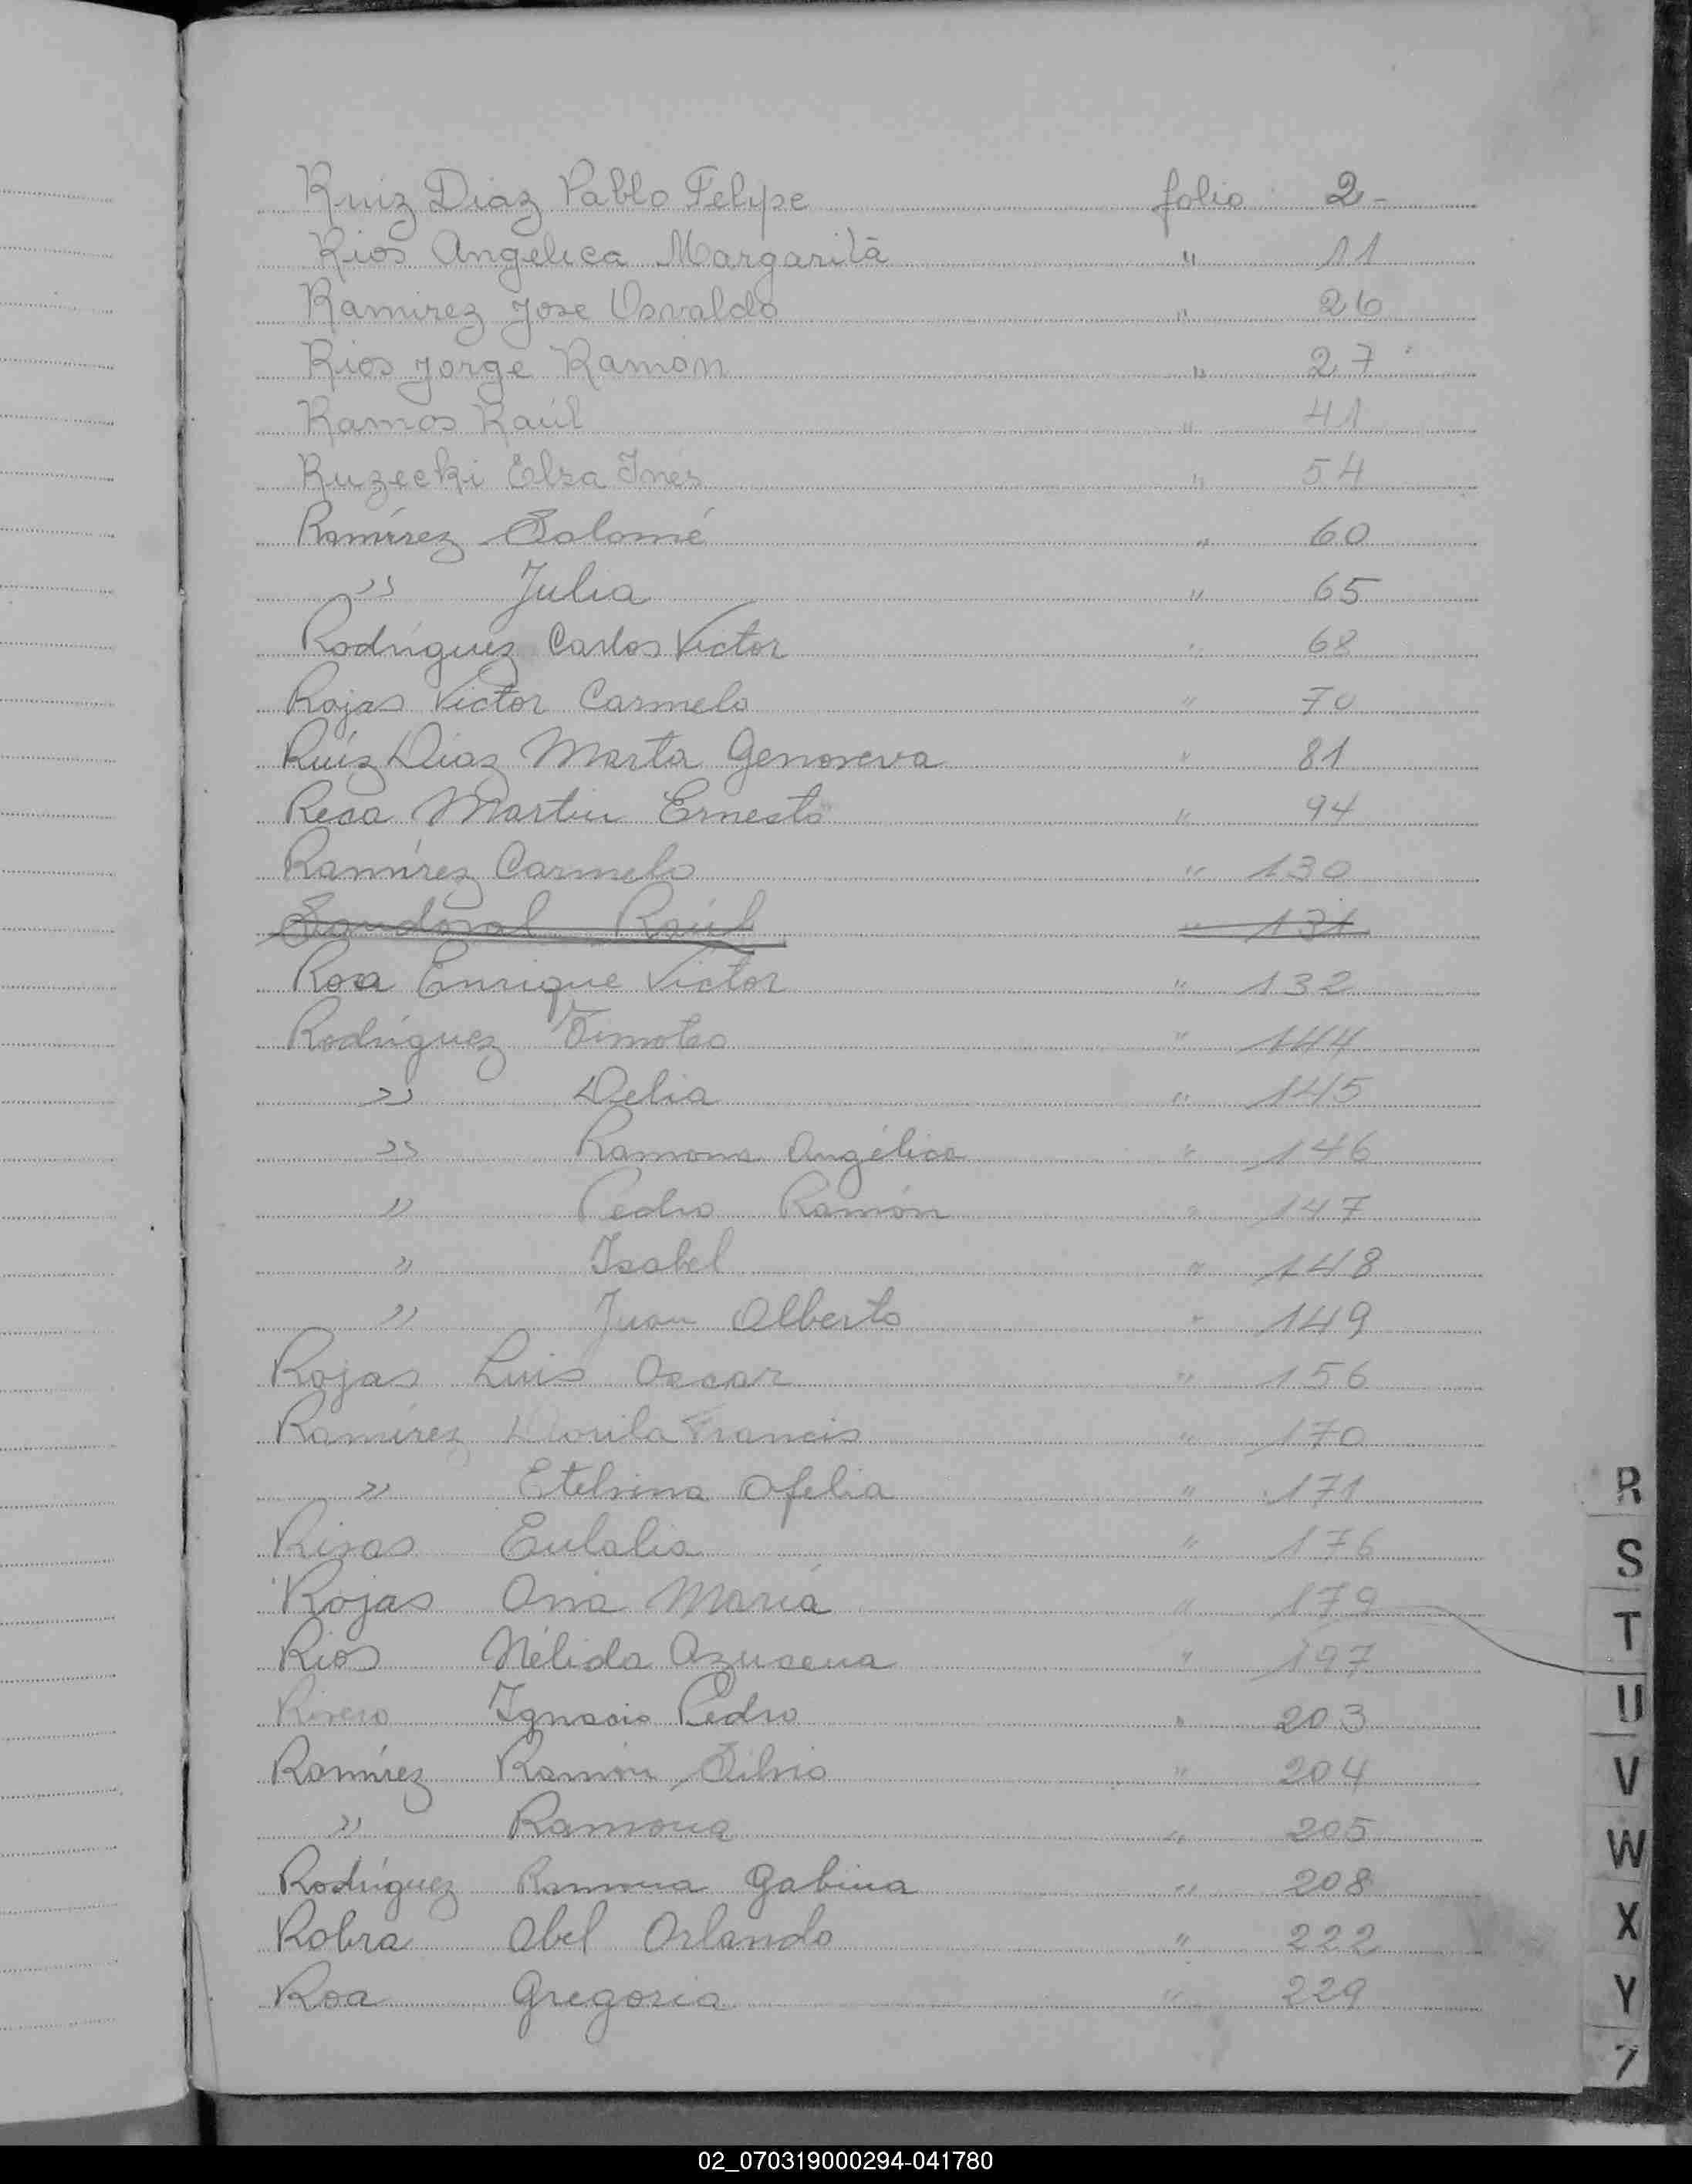 Ruiz Diaz Pablo Felipe folio 2-
Rios Angelica Margarita " 11
Ramirez Jose Osvaldo " 26
Rios Jorge Ramón " 27
Ramos Raúl " 41
Ruzecki Elsa Inés " 54
Ramírez Salomé " 60
" Julia " 65
Rodríguez Carlos Victor " 68
Rojas Victor Carmelo " 70
Ruíz Diaz Marta Genoveva " 81
Reca Martin Ernesto " 94
Ramírez Carmelo " 130
Sandoval Raúl " 131
Roa Enrique Victor " 132
Rodríguez Timoteo " 144
" Delia " 145
" Ramona Angélica " 146
" Pedro Ramón " 147
" Isabel " 148
" Juan Alberto " 149
Rojas Luis Oscar " 156
Ramírez Dorila Francis " 170
" Etelvina Ofelia " 171
Rivas Eulalia " 176
Rojas Ana María " 179
Rios Nélida Azucena " 197
Rivero Ignacio Pedro " 203
Ramírez Ramón Silvio " 204
" Ramona " 205
Rodríguez Ramona Gabina " 208
Robra Abel Orlando " 222
Roa Gregoria " 229
R
S
T
U
V
W
X
Y
Z
02_070319000294-041780